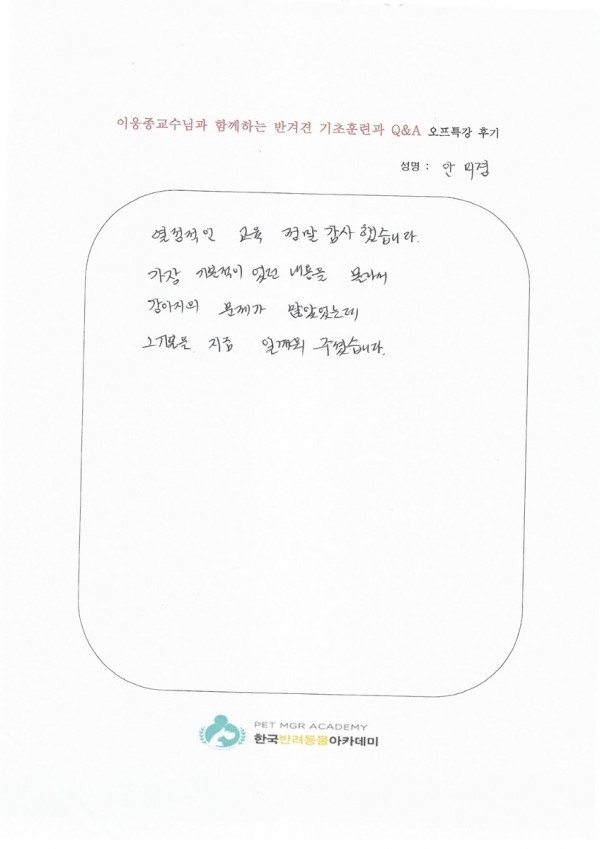 이웅종교수님과 함께하는 반겨견 기초훈련과 Q&A 오프특강 후기
성명 : 안 미경
열정적인 교육 정말 감사했습니다.
가장 기본적이 었던 내용을 몰라서
강아지의 문제가 많았었는데
그기본을 지금 일깨워 주셨습니다.
PET MGR ACADEMY
한국반려동물아카데미